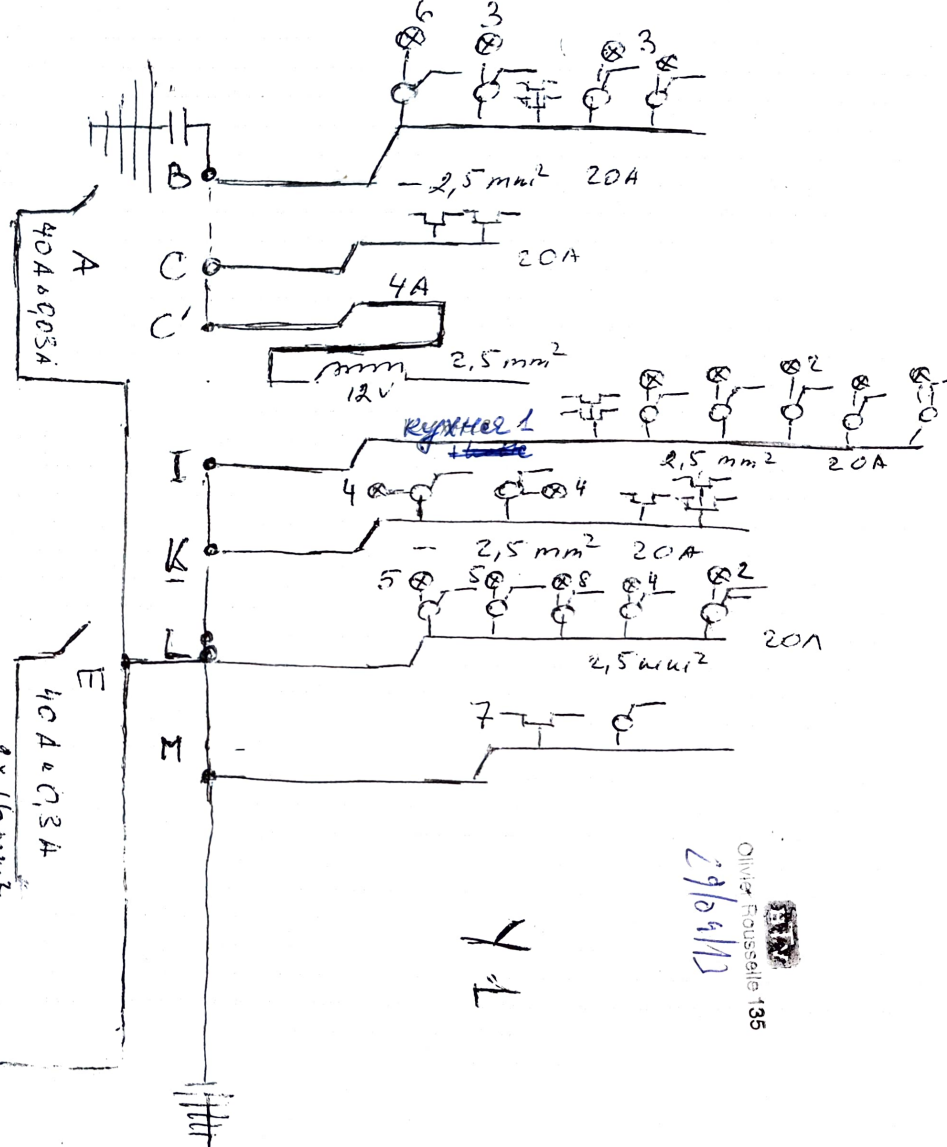 6 3 3
B
2,5 mm² 20A
A
40A 0,03A
C
20A
C'
4A
2,5 mm²
12v
2
кухня 1
I
2,5 mm² 20A
4 4
K
2,5 mm² 20A
5 5 8 4 2
L
20A
2,5 mm²
E
40A 0,3A
7
M
Olivier Rousselle 135
29/04/13